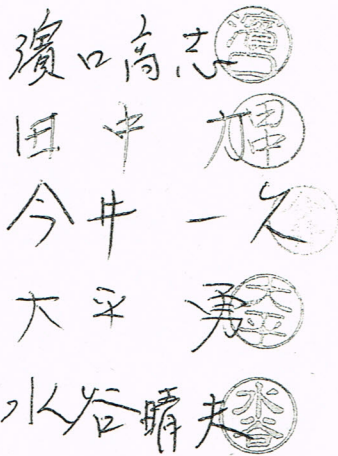 濱口高志 濱口
田中 力 田中
今井 一久
大平 勇 大平
水谷晴夫 水谷